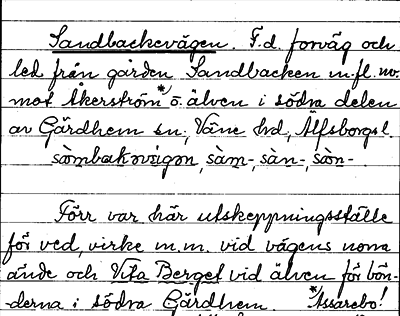 Sandbackevägen. F.d. forväg och
led från gården Sandbacken m.fl. nv.
mot Åkerström* o. älven i södra delen
av Gärdhem sn, Väne hd, Älfsborgs l.
sàmbakovǽigon, sàm-, sàn-, sàn-.
Förr var här utskeppningsställe
för ved, virke m.m. vid vägens norra
ände och Vita Berget vid älven för bön-
derna i södra Gärdhem. *Assarebo!